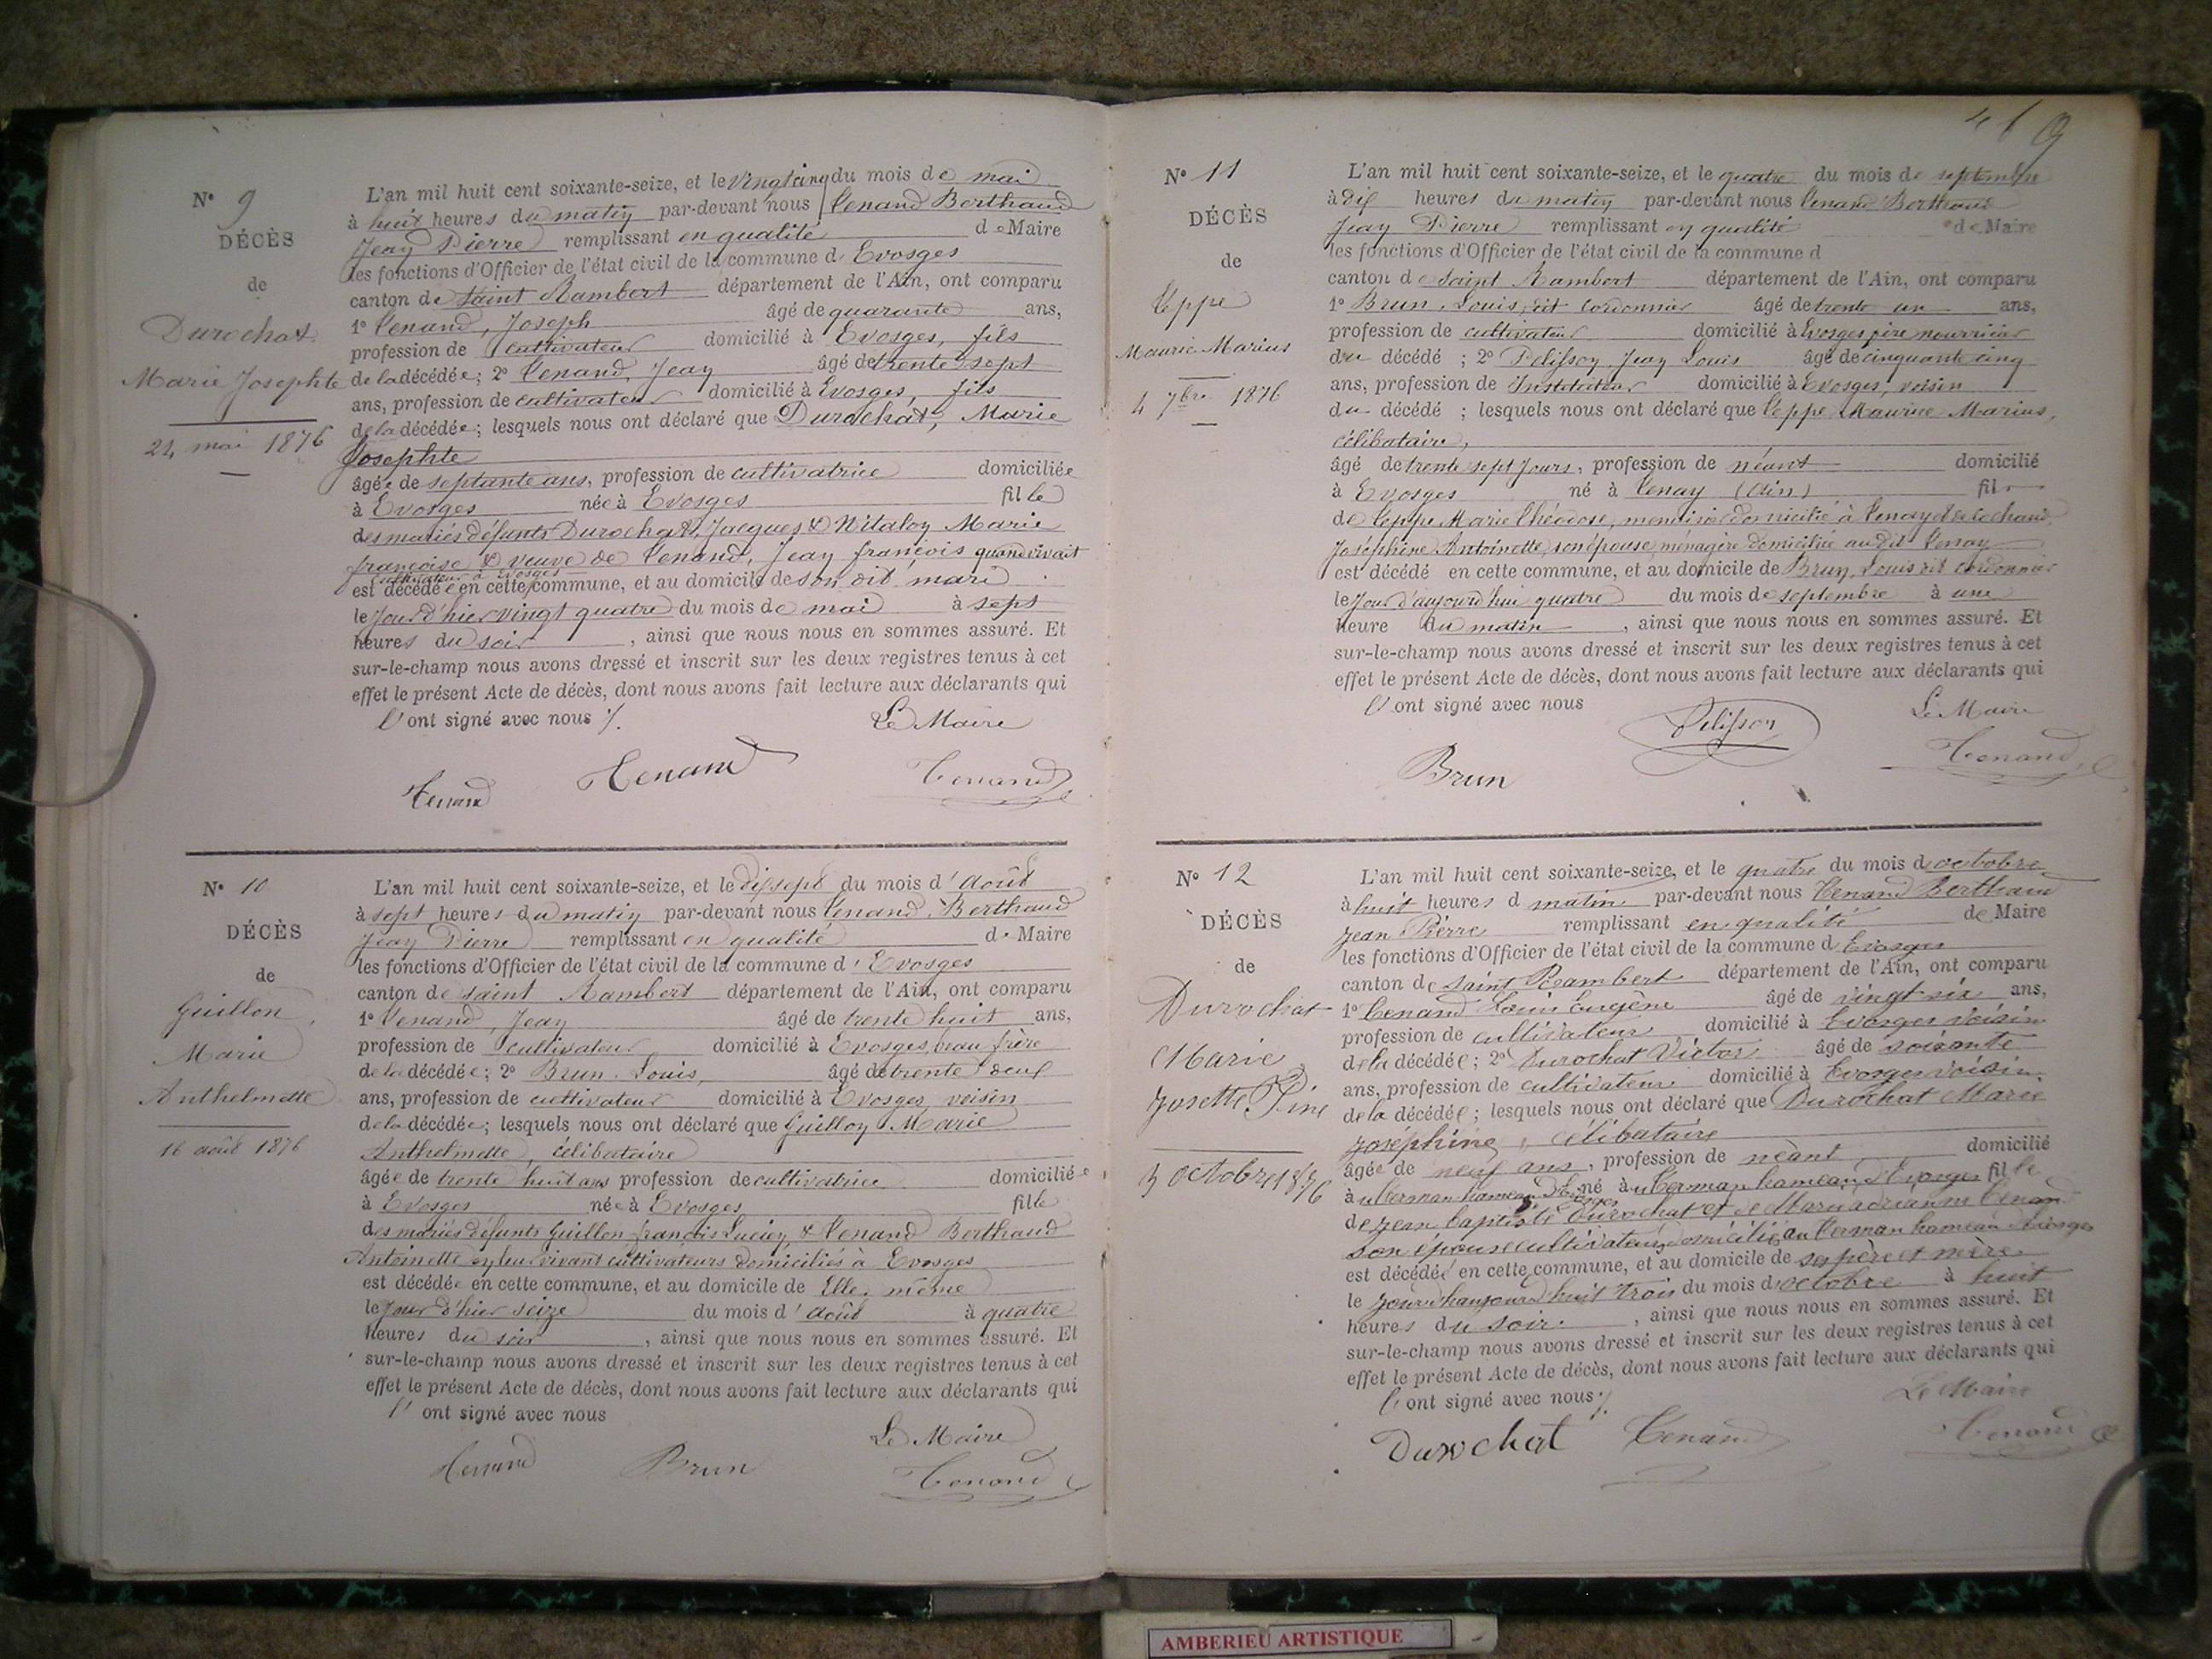 N° 9
DÉCÈS
de
Durochat
Marie Josephte
24 mai 1876
L'an mil huit cent soixante-seize, et le vingt cinq du mois de mai
à huit heures du matin par-devant nous Tenand Berthaud
Jean Pierre remplissant en qualité de Maire
les fonctions d'Officier de l'état civil de la commune d'Evosges
canton de Saint Rambert département de l'Ain, ont comparu
1° Tenand, Joseph âgé de quarante ans,
profession de cultivateur domicilié à Evosges, fils
de la décédée; 2° Tenand, Jean âgé de trente sept
ans, profession de cultivateur domicilié à Evosges, fils
de la décédée; lesquels nous ont déclaré que Durochat, Marie
Josephte
âgée de septante ans, profession de cultivatrice domiciliée
à Evosges née à Evosges fille
des mariés défunts Durochat, Jacques & Marie
françoise & veuve de Tenand, Jean françois quand vivait
cultivateur à Evosges
est décédée en cette commune, et au domicile de son dit mari
le jour d'hier vingt quatre du mois de mai à sept
heures du soir, ainsi que nous nous en sommes assuré. Et
sur-le-champ nous avons dressé et inscrit sur les deux registres tenus à cet
effet le présent Acte de décès, dont nous avons fait lecture aux déclarants qui
l'ont signé avec nous ./.
Le Maire
Tenand Tenand Tenand
N° 10
DÉCÈS
de
Guillon
Marie
Anthelmette
16 août 1876
L'an mil huit cent soixante-seize, et le dix sept du mois d'août
à sept heures du matin par-devant nous Tenand Berthaud
Jean Pierre remplissant en qualité de Maire
les fonctions d'Officier de l'état civil de la commune d'Evosges
canton de saint Rambert département de l'Ain, ont comparu
1° Tenand, Jean âgé de trente huit ans,
profession de cultivateur domicilié à Evosges, beau frère
de la décédée; 2° Brun Louis, âgé de trente deux
ans, profession de cultivateur domicilié à Evosges voisin
de la décédée; lesquels nous ont déclaré que Guillon Marie
Anthelmette, célibataire
âgée de trente huit ans profession de cultivatrice domiciliée
à Evosges née à Evosges fille
des mariés défunts Guillon françois Lucien & Tenand Berthaud
Antoinette en leur vivant cultivateurs domiciliés à Evosges
est décédée en cette commune, et au domicile de Elle même
le jour d'hier seize du mois d'août à quatre
heures du soir, ainsi que nous nous en sommes assuré. Et
sur-le-champ nous avons dressé et inscrit sur les deux registres tenus à cet
effet le présent Acte de décès, dont nous avons fait lecture aux déclarants qui
l'ont signé avec nous
Le Maire
Tenand Brun Tenand
N° 11
DÉCÈS
de
Teppe
Maurice Marius
4 7bre 1876
L'an mil huit cent soixante-seize, et le quatre du mois de septembre
à dix heures du matin par-devant nous Tenand Berthaud
Jean Pierre remplissant en qualité de Maire
les fonctions d'Officier de l'état civil de la commune d
canton de Saint Rambert département de l'Ain, ont comparu
1° Brun, Louis, dit Cordonnier âgé de trente un ans,
profession de cultivateur domicilié à Evosges père nourricier
du décédé; 2° Pelisson, Jean Louis âgé de cinquante cinq
ans, profession de Instituteur domicilié à Evosges, voisin
du décédé; lesquels nous ont déclaré que Teppe Maurice Marius,
célibataire,
âgé de trente sept jours, profession de néant domicilié
à Evosges né à Tenay (Ain) fils
de Teppe Marie Théodose, menuisier domicilié à Tenay & de
Joséphine Antoinette, son épouse, ménagère domiciliée au dit Tenay
est décédé en cette commune, et au domicile de Brun, Louis dit cordonnier
le jour d'aujourd'hui quatre du mois de septembre à une
heure du matin, ainsi que nous nous en sommes assuré. Et
sur-le-champ nous avons dressé et inscrit sur les deux registres tenus à cet
effet le présent Acte de décès, dont nous avons fait lecture aux déclarants qui
l'ont signé avec nous
Le Maire
Brun Pelisson Tenand
N° 12
DÉCÈS
de
Durochat
Marie
Josette Fine
3 octobre 1876
L'an mil huit cent soixante-seize, et le quatre du mois d'octobre
à huit heures d matin par-devant nous Tenand Berthaud
Jean Pierre remplissant en qualité de Maire
les fonctions d'Officier de l'état civil de la commune d Evosges
canton de Saint Rambert département de l'Ain, ont comparu
1° Tenand Louis Eugène âgé de vingt six ans,
profession de cultivateur domicilié à Evosges voisin
de la décédée; 2° Durochat Victor âgé de soixante
ans, profession de cultivateur domicilié à Evosges voisin
de la décédée; lesquels nous ont déclaré que Durochat Marie
Joséphine, célibataire
âgée de neuf ans, profession de néant domicilié
à hameau né à hameau d'Evosges fille
de Jean baptiste Durochat et de Marie adrianne Tenand
son épouse cultivateurs domiciliés au hameau d'Evosges
est décédée en cette commune, et au domicile de ses père et mère
le trois du mois d'octobre à huit
heures du soir, ainsi que nous nous en sommes assuré. Et
sur-le-champ nous avons dressé et inscrit sur les deux registres tenus à cet
effet le présent Acte de décès, dont nous avons fait lecture aux déclarants qui
l'ont signé avec nous ./.
Le Maire
Durochat Tenand Tenand
AMBERIEU ARTISTIQUE